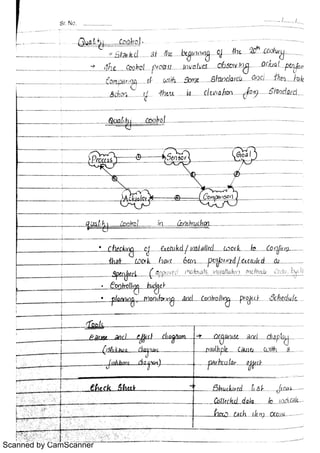 Sr. No.
Quality control.
- Started at the beginning of the 20th century
→ The control process involves observing actual perfor
comparing it with some standards and then take
action if there is deviation from standard
Quality control
Process Sensor Goal
Actuator Comparison
quality control in construction
• checking of executed / installed work to confirm
that work have been performed / executed as
specified (approved materials installation methods
• Controlling budget
• planning, monitoring and controlling project schedule
Tools
cause and effect diagram → organise and display
multiple cause with a
particular effect
Check Sheet → Structured list
collected data to indicate
how each item occur
Scanned by CamScanner